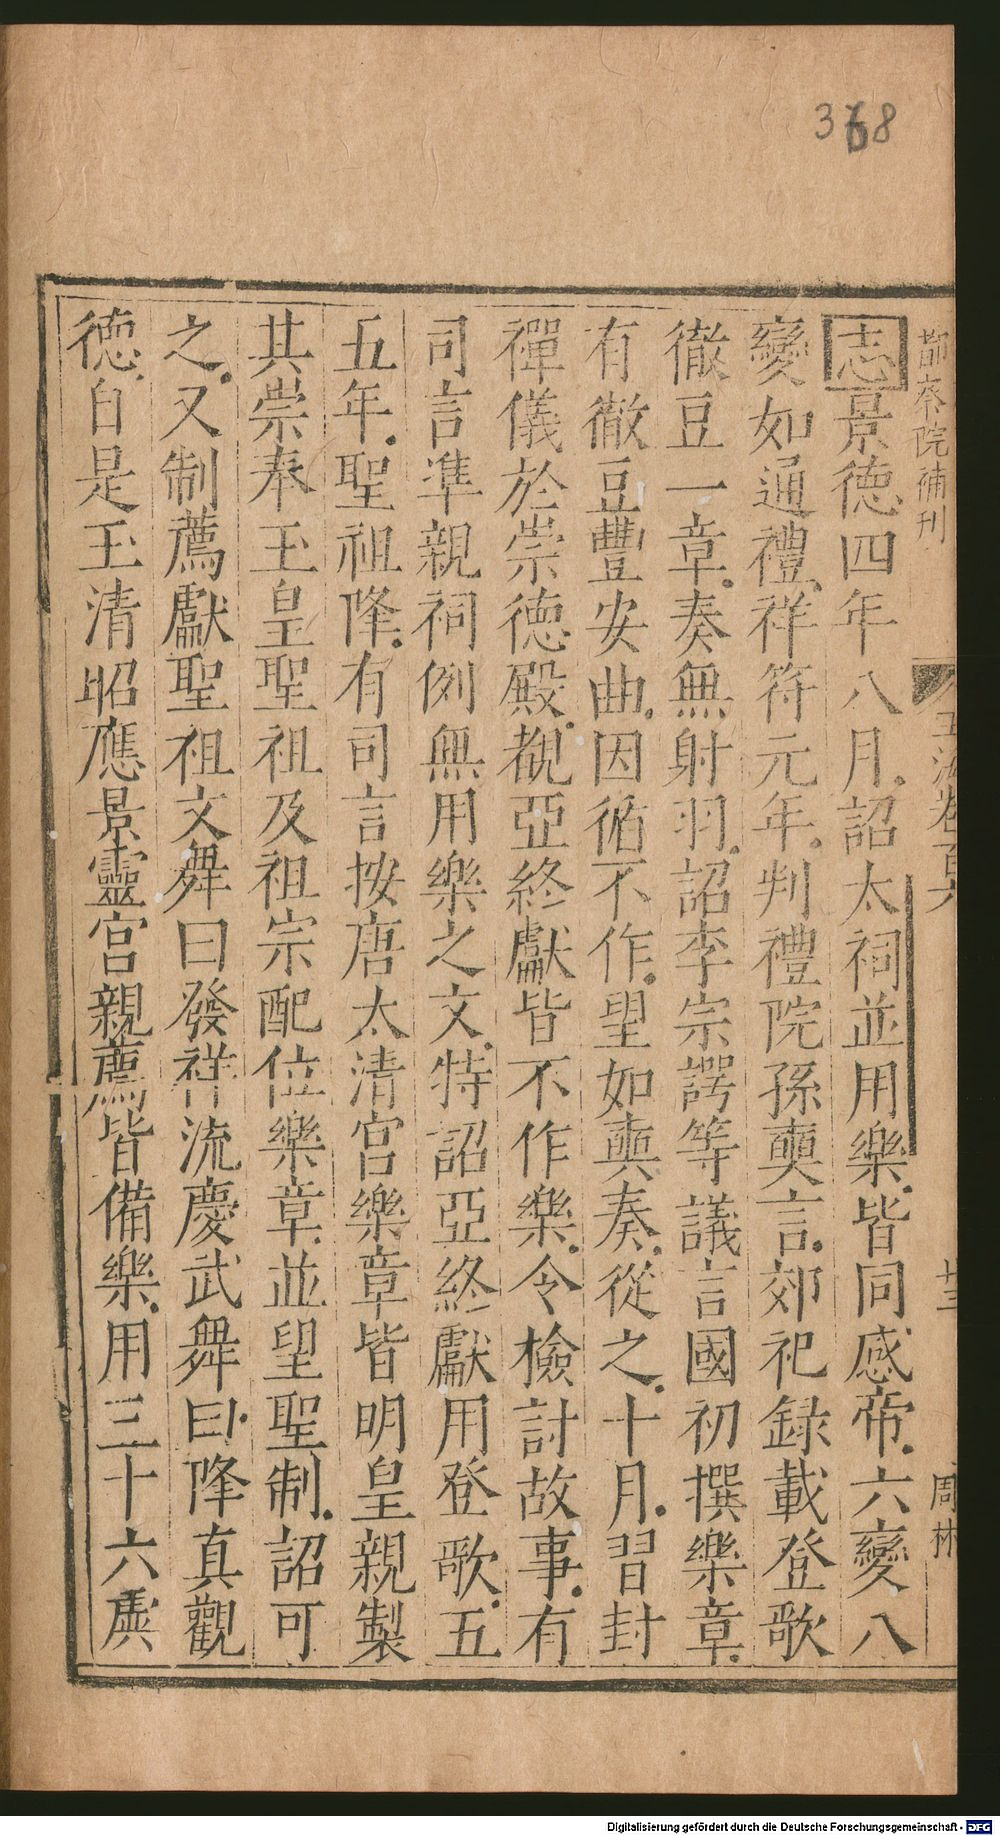 368
都察院補刊
玉海卷百六
十三
周林
志景德四年八月詔太祠並用樂皆同感帝六變八
變如通禮祥符元年判禮院孫奭言郊祀錄載登歌
徹豆一章奏無射羽詔李宗諤等議言國初撰樂章
有徹豆豐安曲因循不作望如奭奏從之十月習封
禪儀於崇德殿覩亞終獻皆不作樂令檢討故事有
司言準親祠例無用樂之文特詔亞終獻用登歌五
五年聖祖降有司言按唐太清宮樂章皆明皇親製
其崇奉玉皇聖祖及祖宗配位樂章並望聖制詔可
之又制薦獻聖祖文舞曰發祥流慶武舞曰降真觀
德自是玉清昭應景靈宮親薦皆備樂用三十六虡
Digitalisierung gefördert durch die Deutsche Forschungsgemeinschaft - DFG